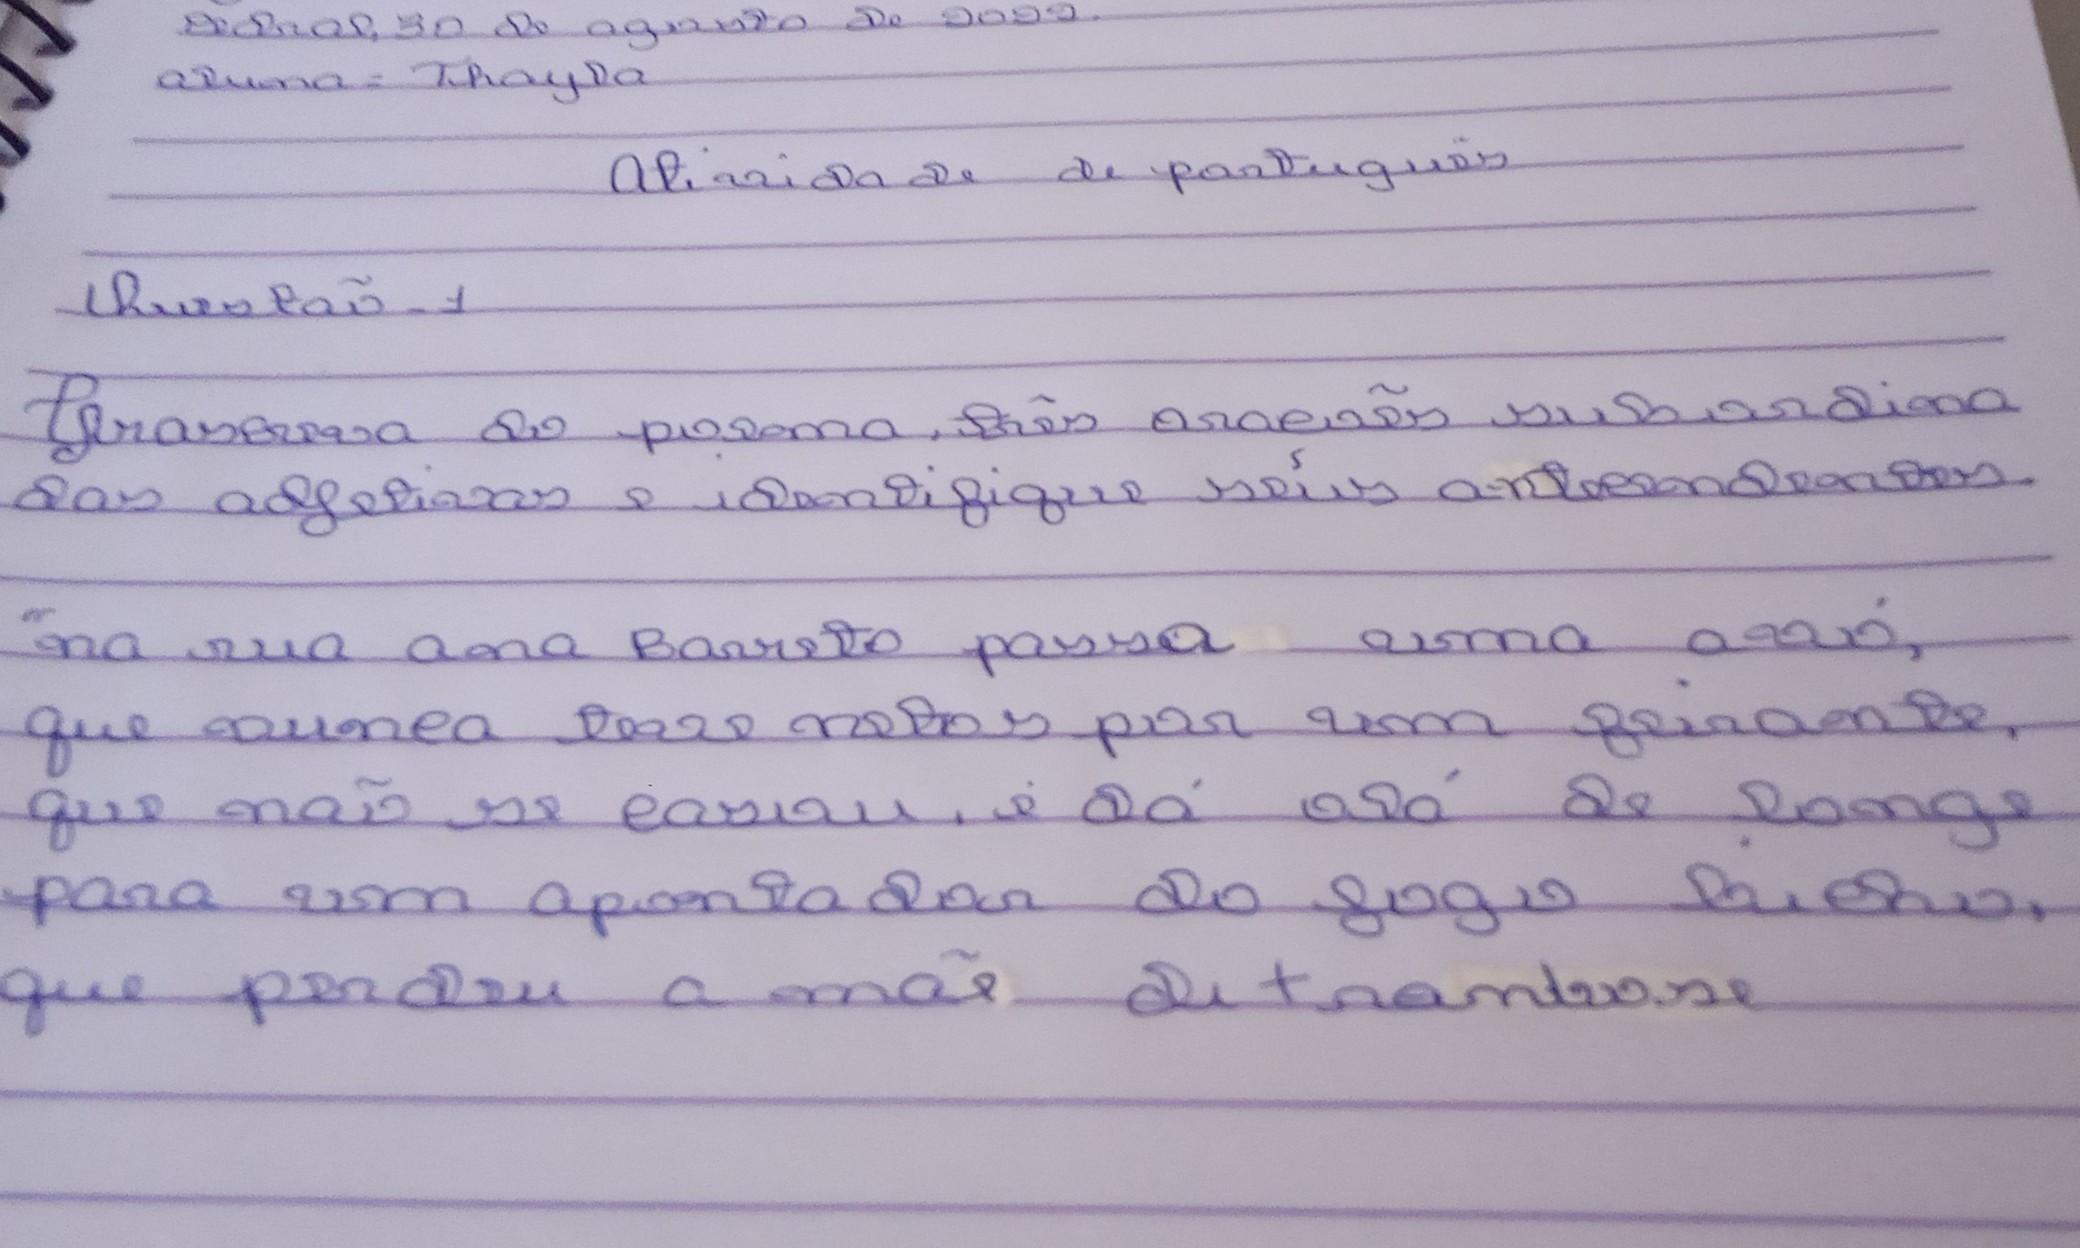 30 de agosto de 2022.
aluna = Thayla
Atividade de português
Questão - 1
do poema, três orações subordina
das adjetivas e identifique séus antecendentes.
"na rua ana Barreto passa uma avó,
que nunca teve netos por um feirante,
que não se casou, e dá olá de longe
para um apontador do gogo bicho,
que perdeu a mãe de trambose